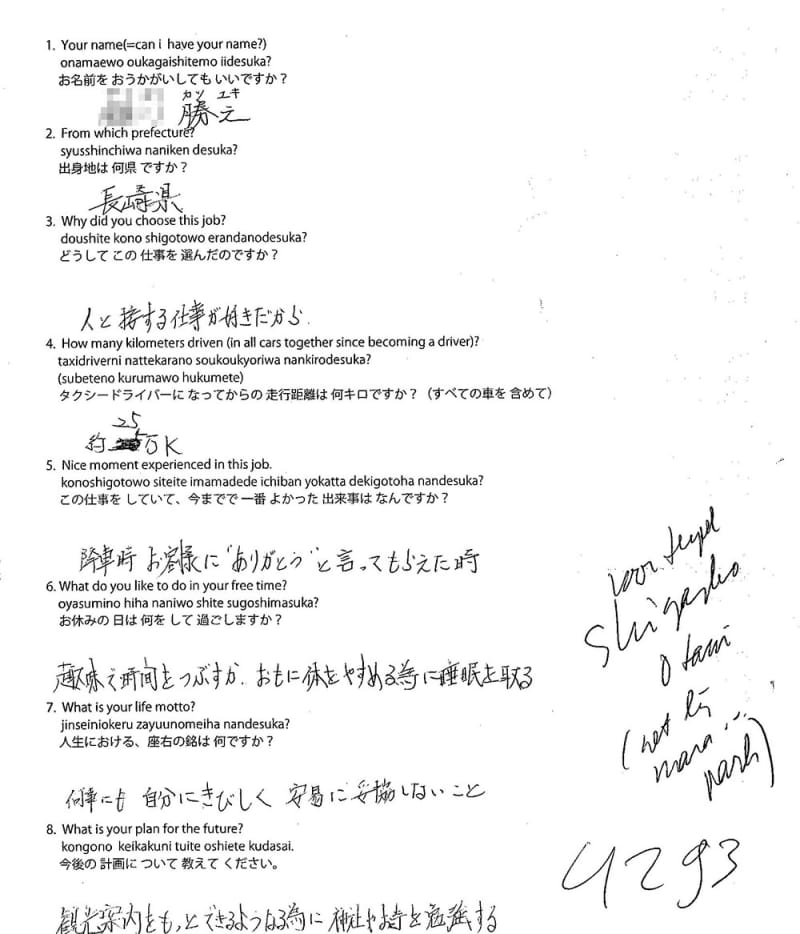 1. Your name(=can i have your name?)
onamaewo oukagaishitemo iidesuka?
お名前を おうかがいしても いいですか？
カツ ユキ
勝之
2. From which prefecture?
syusshinchiwa naniken desuka?
出身地は 何県 ですか？
長崎県
3. Why did you choose this job?
doushite kono shigotowo erandanodesuka?
どうして この 仕事を 選んだのですか？
人と接する仕事が好きだから.
4. How many kilometers driven (in all cars together since becoming a driver)?
taxidriverni nattekarano soukoukyoriwa nankirodesuka?
(subeteno kurumawo hukumete)
タクシードライバーに なってからの 走行距離は 何キロですか？（すべての車を 含めて）
25
約 万K
5. Nice moment experienced in this job.
konoshigotowo siteite imamadede ichiban yokatta dekigotoha nandesuka?
この仕事を していて、今までで 一番 よかった 出来事は なんですか？
降車時 お客様に"ありがとう"と言ってもらえた時
6. What do you like to do in your free time?
oyasumino hiha naniwo shite sugoshimasuka?
お休みの 日は 何を して 過ごしますか？
趣味で時間をつぶすか. おもに体をやすめる為に睡眠を取る
7. What is your life motto?
jinseiniokeru zayuunomeiha nandesuka?
人生における、座右の銘は 何ですか？
何事にも 自分にきびしく 安易に妥協しないこと
8. What is your plan for the future?
kongono keikakuni tuite oshiete kudasai.
今後の 計画に ついて 教えて ください。
観光案内をもっとできるようなる為に神社やお寺を勉強する
voor tempel
Shigasho
Otani
(net bij
mara...
park)
4293